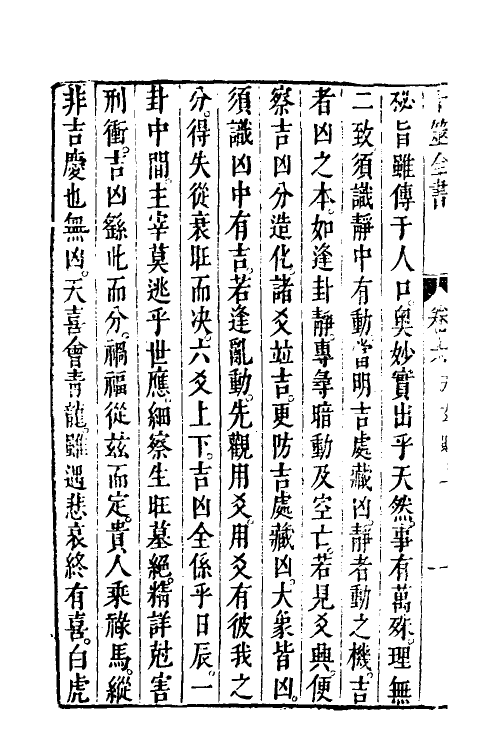 卜筮全書
卷之六
秘旨雖傳于人口。奧妙實出乎天然。事有萬殊。理無
二致。須識靜中有動。當明吉處藏凶。靜者動之機。吉
者凶之本。如逢卦靜。專尋暗動及空亡。若見爻興。便
察吉凶分造化。諸爻並吉。更防吉處藏凶。大象皆凶。
須識凶中有吉。若逢亂動。先觀用爻。用爻有彼我之
分。得失從衰旺而决。六爻上下。吉凶全係乎日辰。一
卦中間。主宰莫逃乎世應。細察生旺墓絕。精詳尅害
刑衝。吉凶繇此而分。禍福從玆而定。貴人乘祿馬。縱
非吉慶也無凶。天喜會青龍。雖遇悲哀終有喜。白虎